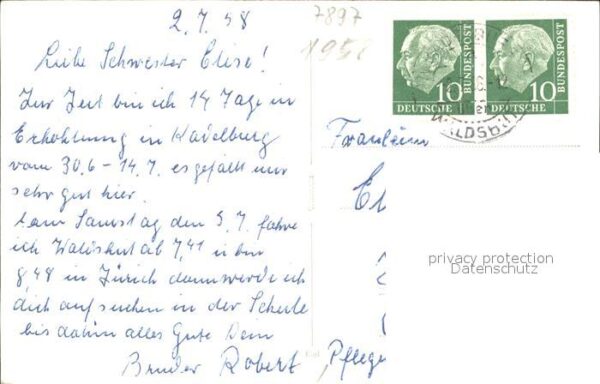 2.7.58
7897
1958
Liebe Schwester Elise!
Zur Zeit bin ich 14 Tage in
Erhohlung in Kadelburg
vom 30.6 - 14.7. es gefällt mir
sehr gut hier.
am Samstag den 5.7. fahre
ich Waldshut ab 7,41 u bin
8,48 in Zürich dann werde ich
dich aufsuchen in der Schule
bis dahin alles Gute Dein
Bruder Robert
10 DEUTSCHE BUNDESPOST
10 DEUTSCHE BUNDESPOST
Fräulein
El
Pflege
privacy protection
Datenschutz